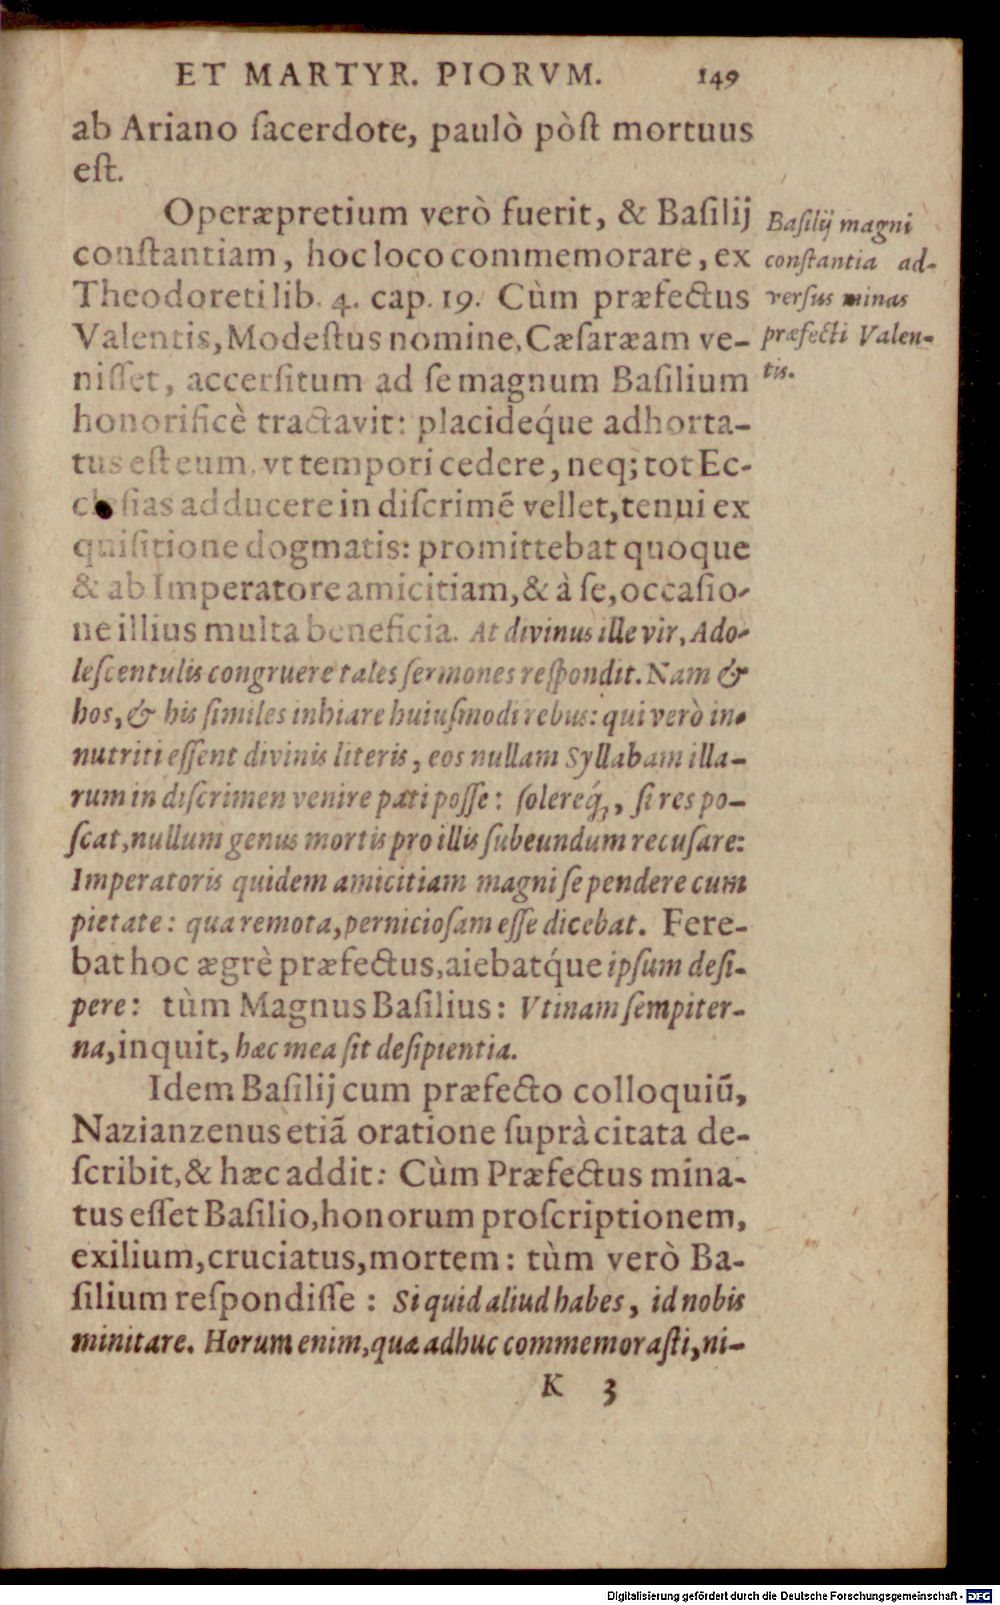 ET MARTYR. PIORVM. 149
ab Ariano ſacerdote, paulò pòſt mortuus
eſt.
Operæpretium verò fuerit, & Baſilij
conſtantiam, hoc loco commemorare, ex
Theodoreti lib. 4. cap. 19. Cùm præfectus
Valentis, Modeſtus nomine, Cæſaræam ve-
niſſet, accerſitum ad ſe magnum Baſilium
honorificè tractavit: placideq́ue adhorta-
tus eſt eum, vt tempori cedere, neq; tot Ec-
cleſias adducere in diſcrimē vellet, tenui ex
quiſitione dogmatis: promittebat quoque
& ab Imperatore amicitiam, & à ſe, occaſio-
ne illius multa beneficia. At divinus ille vir, Ado-
leſcentulis congruere tales ſermones reſpondit. Nam &
hos, & his ſimiles inhiare huiuſmodi rebus: qui verò in-
nutriti eſſent divinis literis, eos nullam Syllabam illa-
rum in diſcrimen venire pati poſſe: ſolereq́;, ſi res po-
ſcat, nullum genus mortis pro illis ſubeundum recuſare:
Imperatoris quidem amicitiam magni ſe pendere cum
pietate: qua remota, pernicioſam eſſe dicebat. Fere-
bat hoc ægrè præfectus, aiebatq́ue ipſum deſi-
pere: tùm Magnus Baſilius: Vtinam ſempiter-
na, inquit, hæc mea ſit deſipientia.
Idem Baſilij cum præfecto colloquiū,
Nazianzenus etiā oratione ſuprà citata de-
ſcribit, & hæc addit: Cùm Præfectus mina-
tus eſſet Baſilio, honorum proſcriptionem,
exilium, cruciatus, mortem: tùm verò Ba-
ſilium reſpondiſſe: Si quid aliud habes, id nobis
minitare. Horum enim, quæ adhuc commemoraſti, ni-
K 3
Baſilij magni
conſtantia ad-
verſus minas
præfecti Valen-
tis.
Digitalisierung gefördert durch die Deutsche Forschungsgemeinschaft - DFG